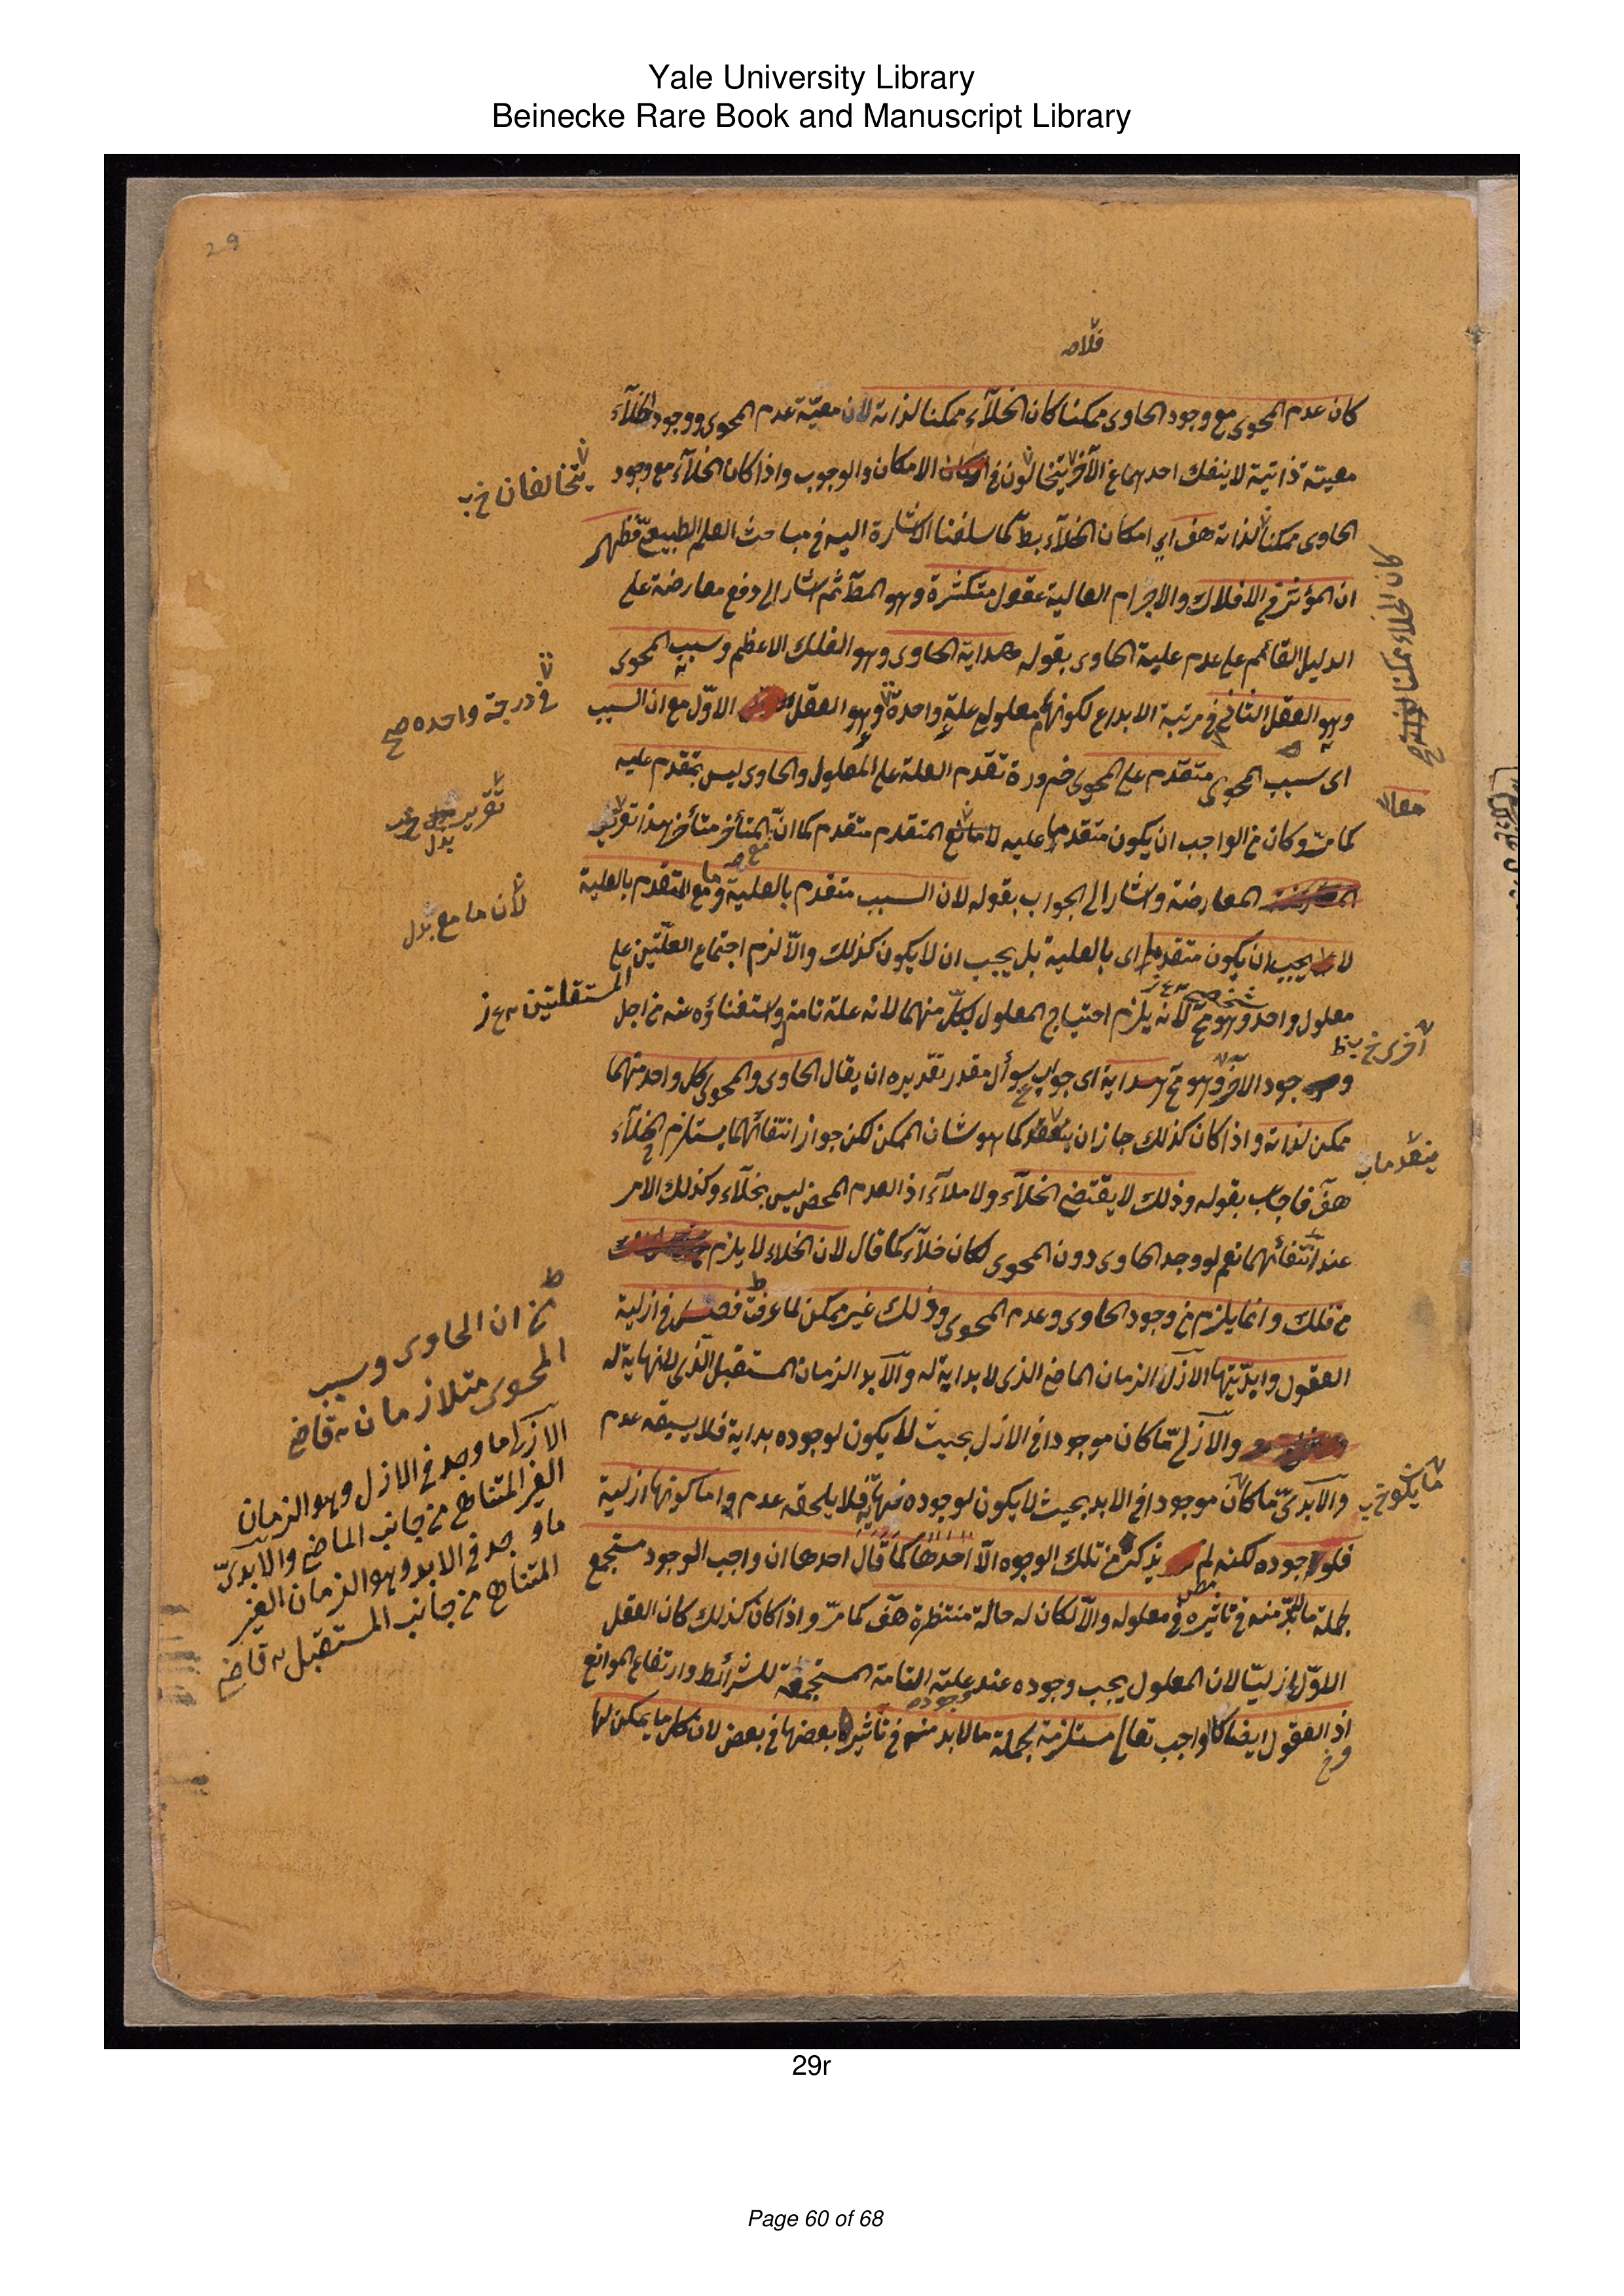 Yale University Library
Beinecke Rare Book and Manuscript Library
29
كان عدم المحوى مع وجود الحاوى ممكنا كان الخلآء ممكنا لذاته لان معيّة عدم المحوى ووجود الخلآء
معية ذاتية لا ينفك احدهما عن الآخر يتخالفون فى الامكان والوجوب واذا كان الخلآء مع وجود
يتخالفان خ ب
الحاوى ممكنا لذاته هف اى امكان الخلآء بط كما سلفنا الاشارة اليه فى مباحث العلم الطبيعى فظهر
ان المؤثر فى الافلاك والاجرام العالية عقول متكثرة وهو المط ثم اشار الى دفع معارضة على
كان الخلاء ممكنا
الدليل القائم على عدم علية الحاوى بقوله هداية الحاوى وهو الفلك الاعظم وسبب المحوى
وهو العقل الثانى فى مرتبة الابداع لكونهما معلولى علة واحدة وهو العقل الاوّل مع ان السبب
فى درجة واحده صح
اى سبب المحوى متقدم على المحوى ضرورة تقدم العلة على المعلول والحاوى ليس بمتقدم عليه
كما مرّ وكان من الواجب ان يكون متقدما عليه لا مع المتقدم متقدم كما انّ المتأخر متأخر هذا تقرير
تقرير
بدل
المعارضة واشار الى الجواب بقوله لان السبب متقدم بالعلية وما مع المتقدم بالعلية
لأن ما مع بدل
لا يجب ان يكون متقدما اى بالعلية بل يجب ان لا يكون كذلك والاّ لزم اجتماع العلّتين على
المستقلتين
معلول واحد وهو مح لأنه يلزم احتياج المعلول لكل منهما لانه علة تامة واستغناؤه عنه من اجل
اخرى خ ب ظ
وجود الآخر وهو مح هداية اى جواب سوأل مقدر تقديره ان يقال الحاوى والمحوى كل واحد منهما
ممكن لذاته واذا كان كذلك جاز ان ينعدم كما هو شان الممكن لكن جواز انتفائهما يستلزم الخلآء
ينعدما ب
هف فاجاب بقوله وذلك لا يقتضى الخلآء ولا ملآء اذ العدم المحض ليس بخلآء وكذلك الامر
عند انتفائهما نعم لو وجد الحاوى دون المحوى لكان خلآء كما قال لان الخلاء لا يلزم
من ذلك وانما يلزم من وجود الحاوى وعدم المحوى وذلك غير ممكن لما عرفت فصل فى ازلية
خ ان الحاوى وسبب
المحوى متلازمان قاض
العقول وابديّتها الازل الزمان الماضى الذى لا بداية له والآبد الزمان المستقبل الذى لا نهاية له
والآزلى ما كان موجودا فى الازل بحيث لا يكون لوجوده بداية فلا يسبقه عدم
والآبدىّ ما كان موجودا فى الابد بحيث لا يكون لوجوده نهاية فلا يلحقه عدم واما كونها ازلية
ما يكون خ ب
الازلى ما وجد فى الازل وهو الزمان
الغير المتناهى من جانب الماضى والآبدىّ
ما وجد فى الابد وهو الزمان الغير
المتناهى من جانب المستقبل قاضى
فلوجوده لكنه لم يذكر من تلك الوجوه الاّ احدها كما قال احدها ان واجب الوجود مستجمع
لجملة ما لابدّ منه فى تاثيره فى معلوله والاّ لكان له حالة منتظرة هف كما مرّ واذا كان كذلك كان العقل
الاوّل ازليّا لان المعلول يجب وجوده عند علته التامة المستجمعة للشرائط وارتفاع الموانع
اذ العقول ايضا كالواجب تعالى مستلزمة لجملة ما لابد منه فى تأثير بعضها فى بعض لان كل ما يمكن لها
29r
Page 60 of 68